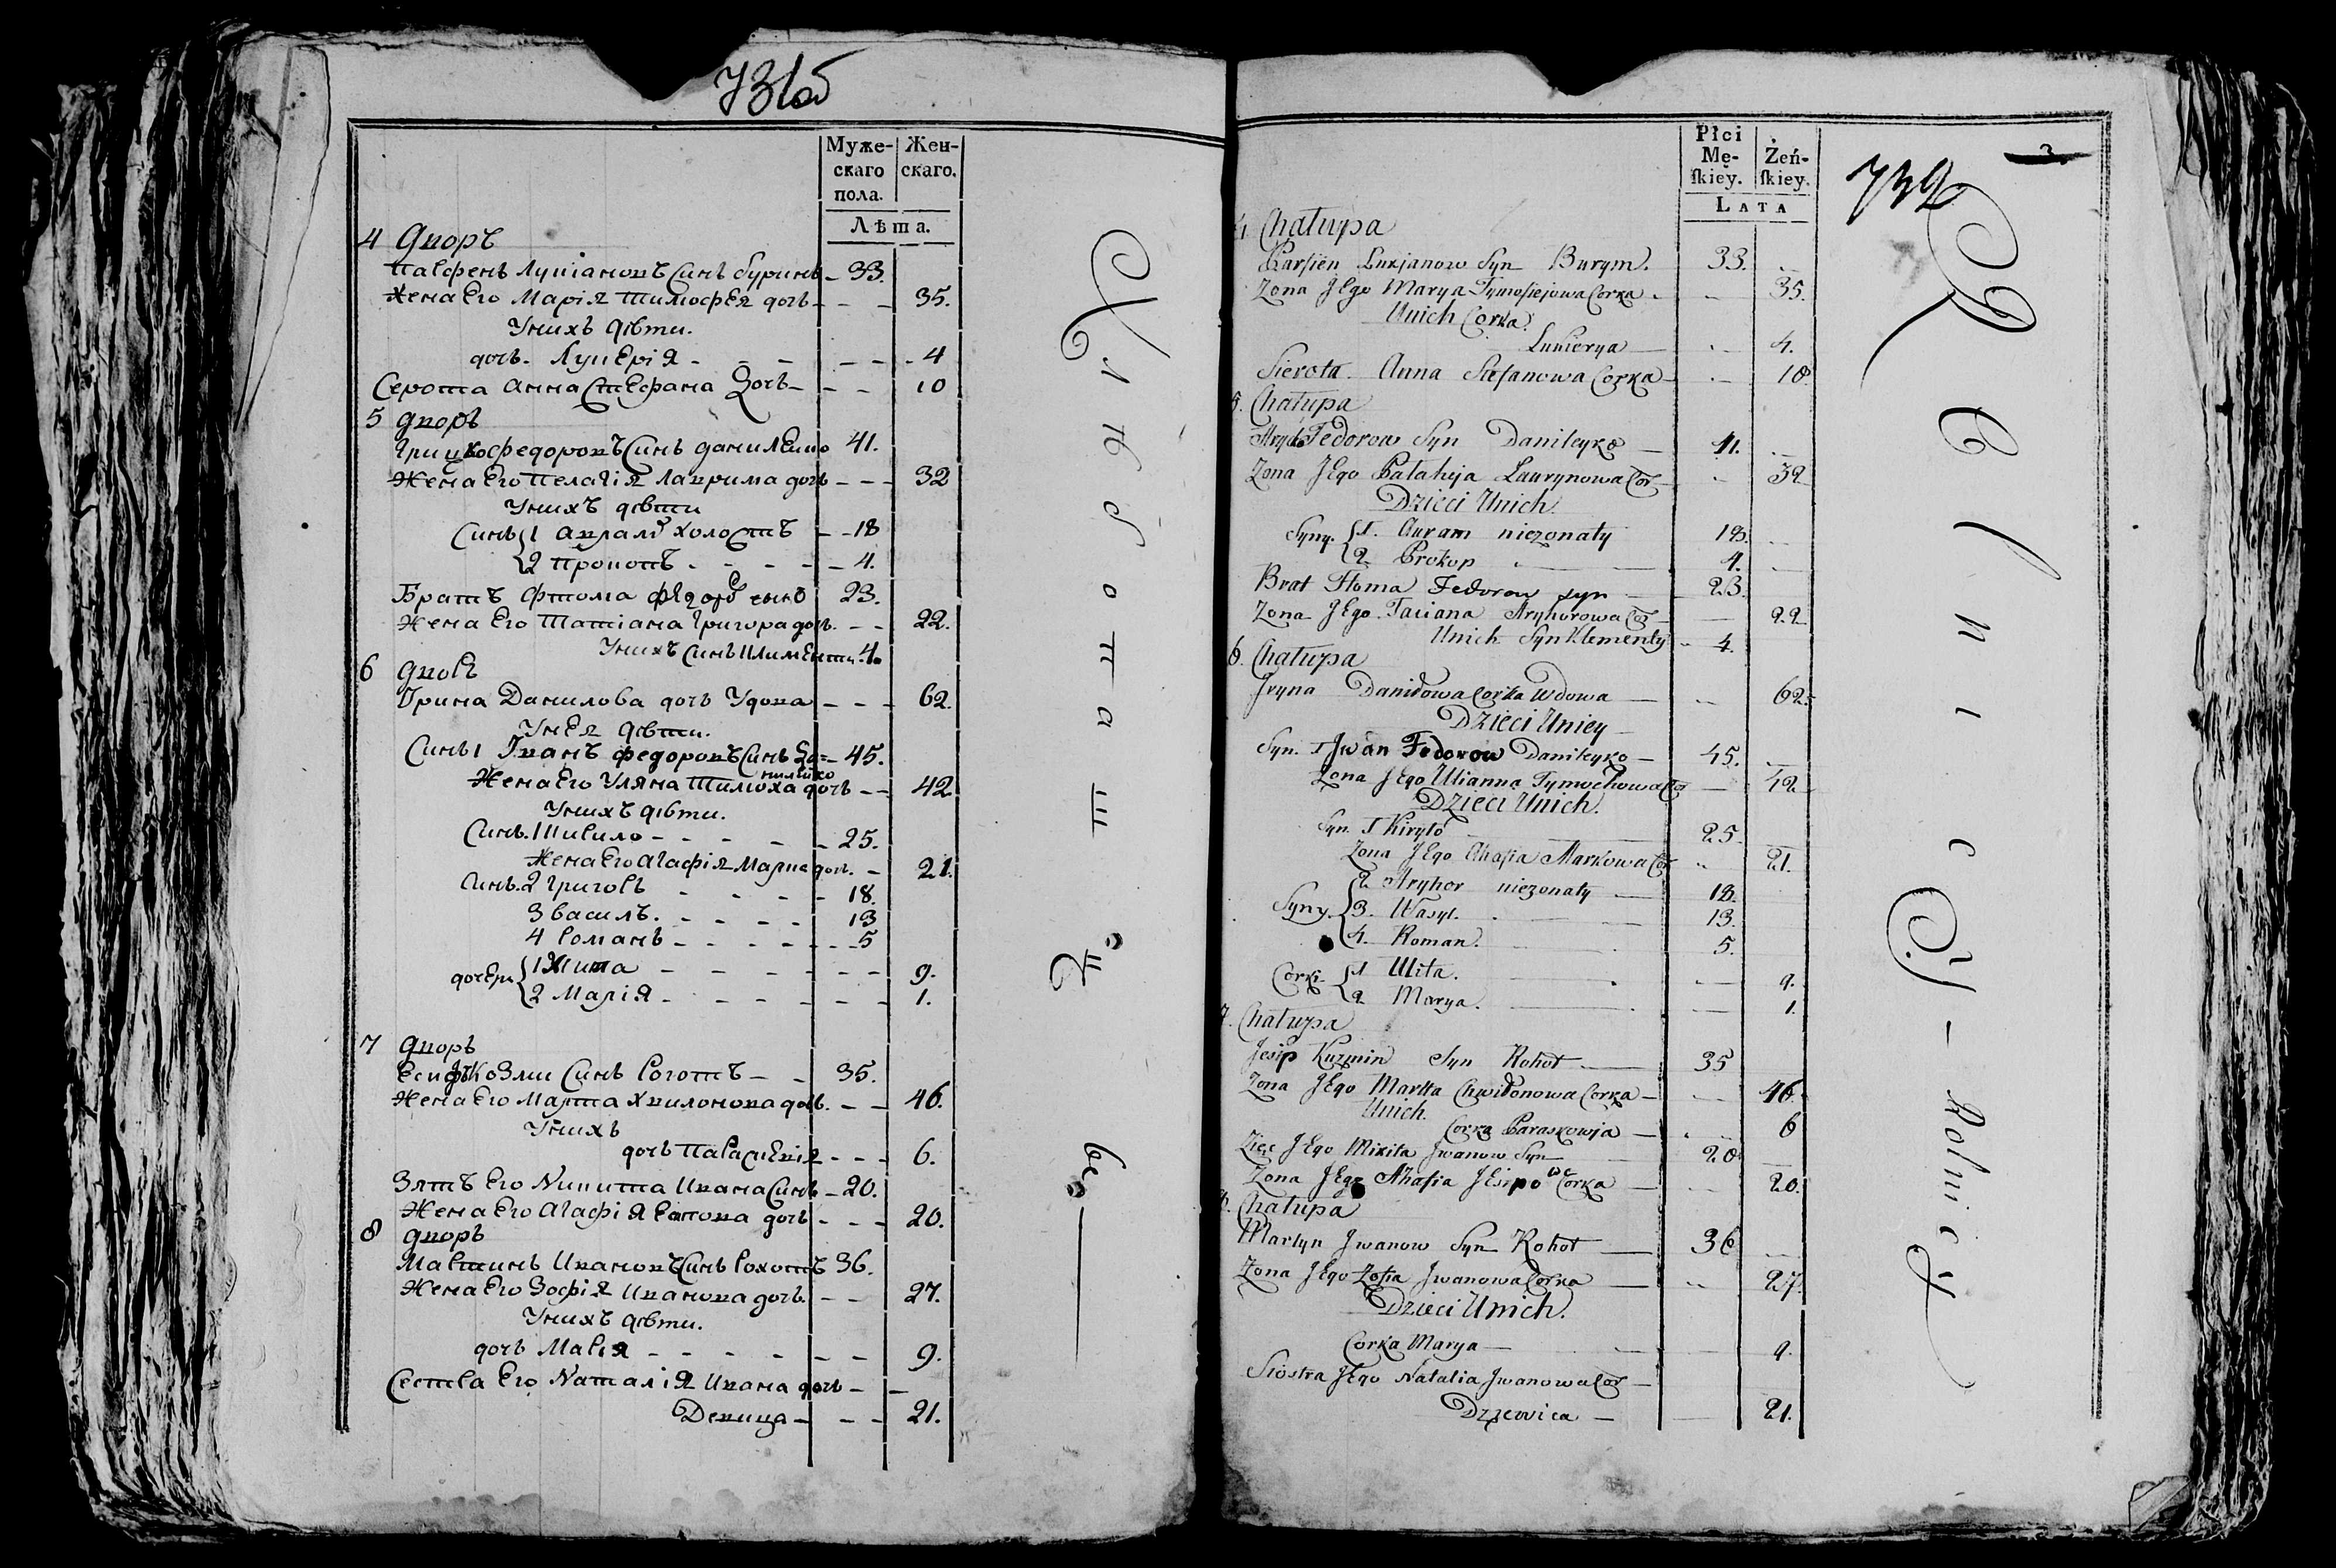 731об
Муже-
скаго
пола.
Жен-
скаго.
Лѣта.
4 дворъ
Парфенъ Лукіановъ Синъ Буримъ - 33.
Жена Его Марія Тимофея дочь - - - 35.
Унихъ дѣти.
дочь. Лукерія - - - - - - 4
Серота Анна Стефана Дочь - - - 10
5 дворъ
Грицко федоровъ Синъ данилейко 41.
Жена Его Пелагія Лаврима дочь - - - 32
Унихъ дѣти
Синъ { 1 аврамъ холостъ - - 18
{ 2 Прокопъ - - - - - 4.
Братъ Фтома федоровъ сынъ 23.
Жена Его Татіана Григора дочь. - - 22.
Унихъ Синъ Климентъ. 4.
6 дворъ
Ірина Данилова дочь Удова - - - 62.
Унея дѣти.
Синъ 1 Іванъ федоровъ Синъ Да= - 45.
нилейко
Жена Его Уляна Тимоха дочь - - 42
Унихъ дѣти.
Синъ. 1 Кирило - - - - - 25.
Жена Его Агафія Марка дочь. - 21.
Синъ. 2 Григоръ - - - - 18.
3 василъ. - - - - 13
4 Романъ - - - - - - 5
дочери { 1 Улита - - - - - - - 9.
{ 2 Марія - - - - - - 1.
7 дворъ
Есифъ Козми Синъ Роготъ - - 35.
Жена Его Марта Хвилонова дочь. - - 46.
Унихъ
дочь Параскевія - - - 6.
Зятъ Его Никита Ивана Синъ - 20.
Жена Его Агафія Есипова дочь - - - 20.
8 дворъ
Мартинъ Ивановъ Синъ Рохотъ 36.
Жена Его Зофія Иванова дочь - - 27.
Унихъ дѣти.
дочь Марія - - - - - - 9.
Сестра Его Наталія Ивана дочь - -
Девица - - - 21.
Хлѣбопашцы
Płci
Mę-
ſkiey.
Żeń-
ſkiey.
LATA
3
732
4. Chałupa
Parfien Łukjanow Syn Burym. 33.
Zona JEgo Marya Tymofiejowa Corka. 35.
Unich Corka.
Łukierya 4.
Sierota Anna Stefanowa Corka 10
5. Chałupa
Hryćko Fedorow Syn Danileyko 41.
Zona JEgo Pałahija Ławrynowa Cor 32
Dzieci Unich.
Syny. { 1. Auram niezonaty 18.
{ 2. Prokop 4.
Brat Ftoma Fedorow syn 23.
Zona JEgo Taciana Hryhorowa Cor 22
Unich Syn Klementy 4.
6. Chałupa
Jryna Daniłowa Corka Wdowa 62.
Dzieci Uniey
Syn. 1 Jwan Fedorow Danileyko 45.
Zona JEgo Ulianna Tymochowa Cor 42
Dzieci Unich.
Syn. 1 Kiryło 25.
Zona JEgo Ahafia Markowa Cor 21.
Syny. { 2 Hryhor niezonaty 18.
{ 3. Wasyl. 13.
{ 4. Roman. 5.
Corki { 1 Ulita. 9.
{ 2 Marya. 1.
7. Chałupa
Jesip Kuzmin Syn Rohot 35
Zona JEgo Marta Chwiłonowa Corka 46.
Unich.
Corka Paraskowja 6
Zięć JEgo Mikita Jwanow Syn 20
Zona JEgo Ahafia JEsipowa Corka 20.
8. Chałupa
Martyn Jwanow Syn Rohot 36
Zona JEgo Zofia Jwanowa Corka 27.
Dzieci Unich.
Corka Marya 9.
Siostra JEgo Natalia Jwanowa Cor
Dziewica 21.
Rolnicy - Rolnicy